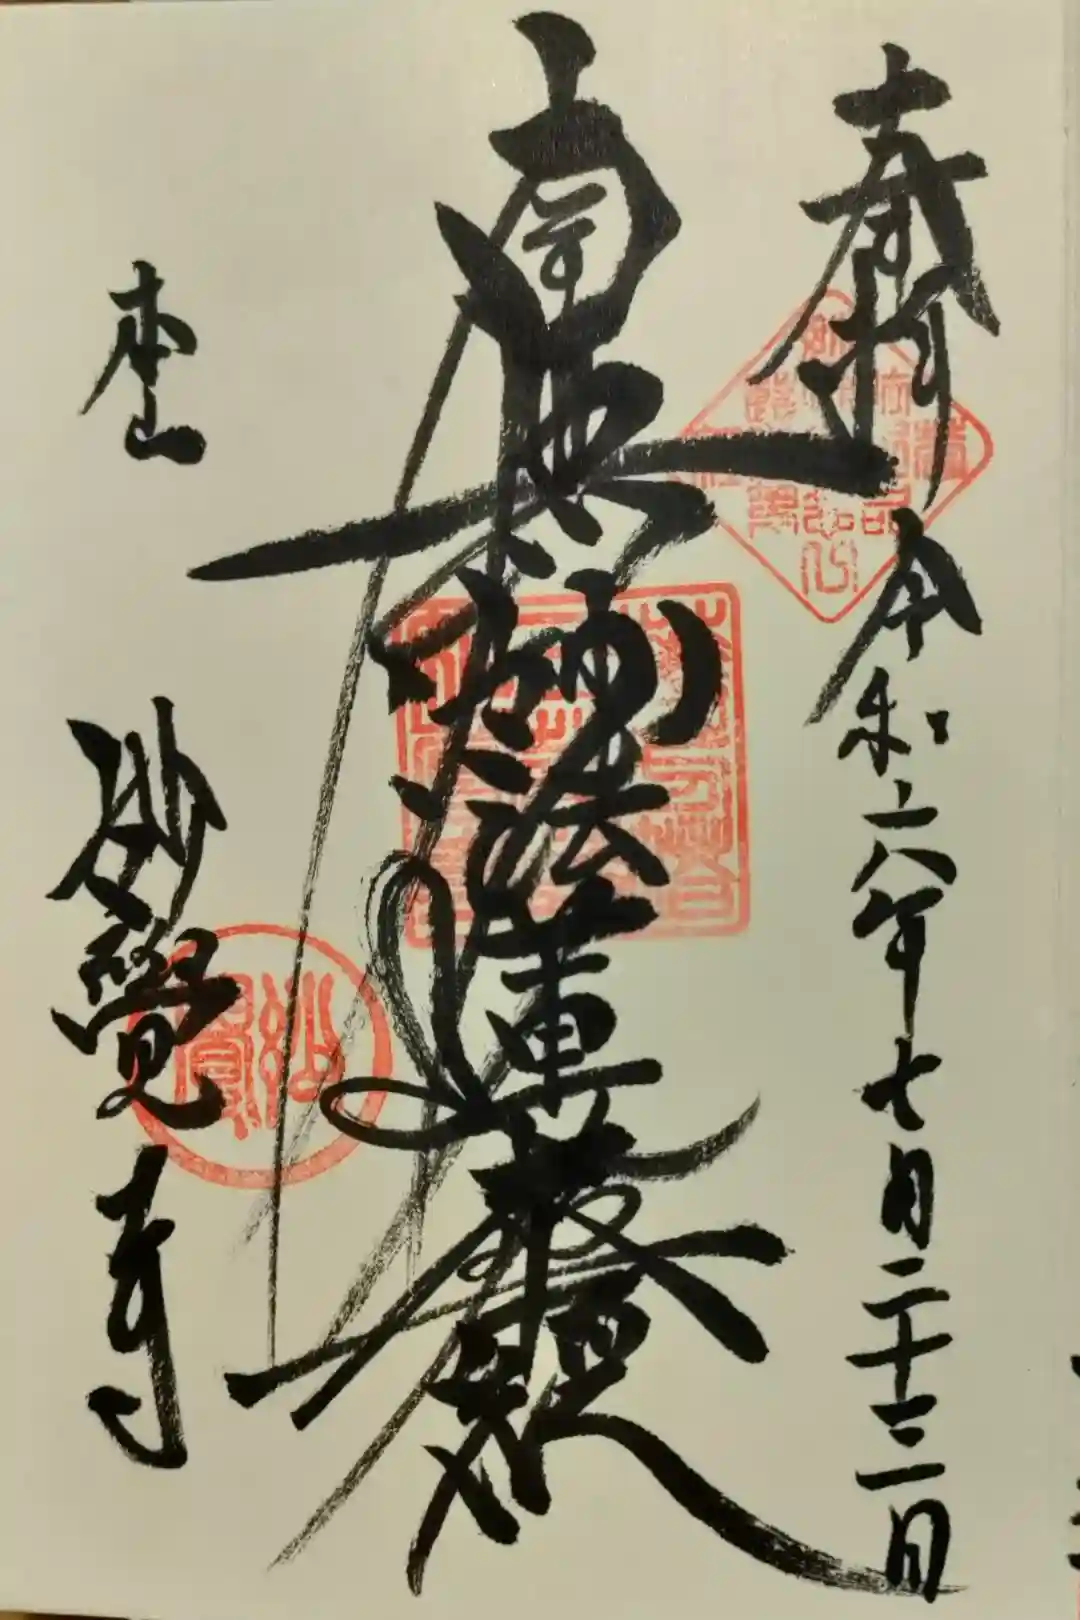 奉拝
令和六年七月二十三日
南無妙法蓮華経
本山
妙覺寺